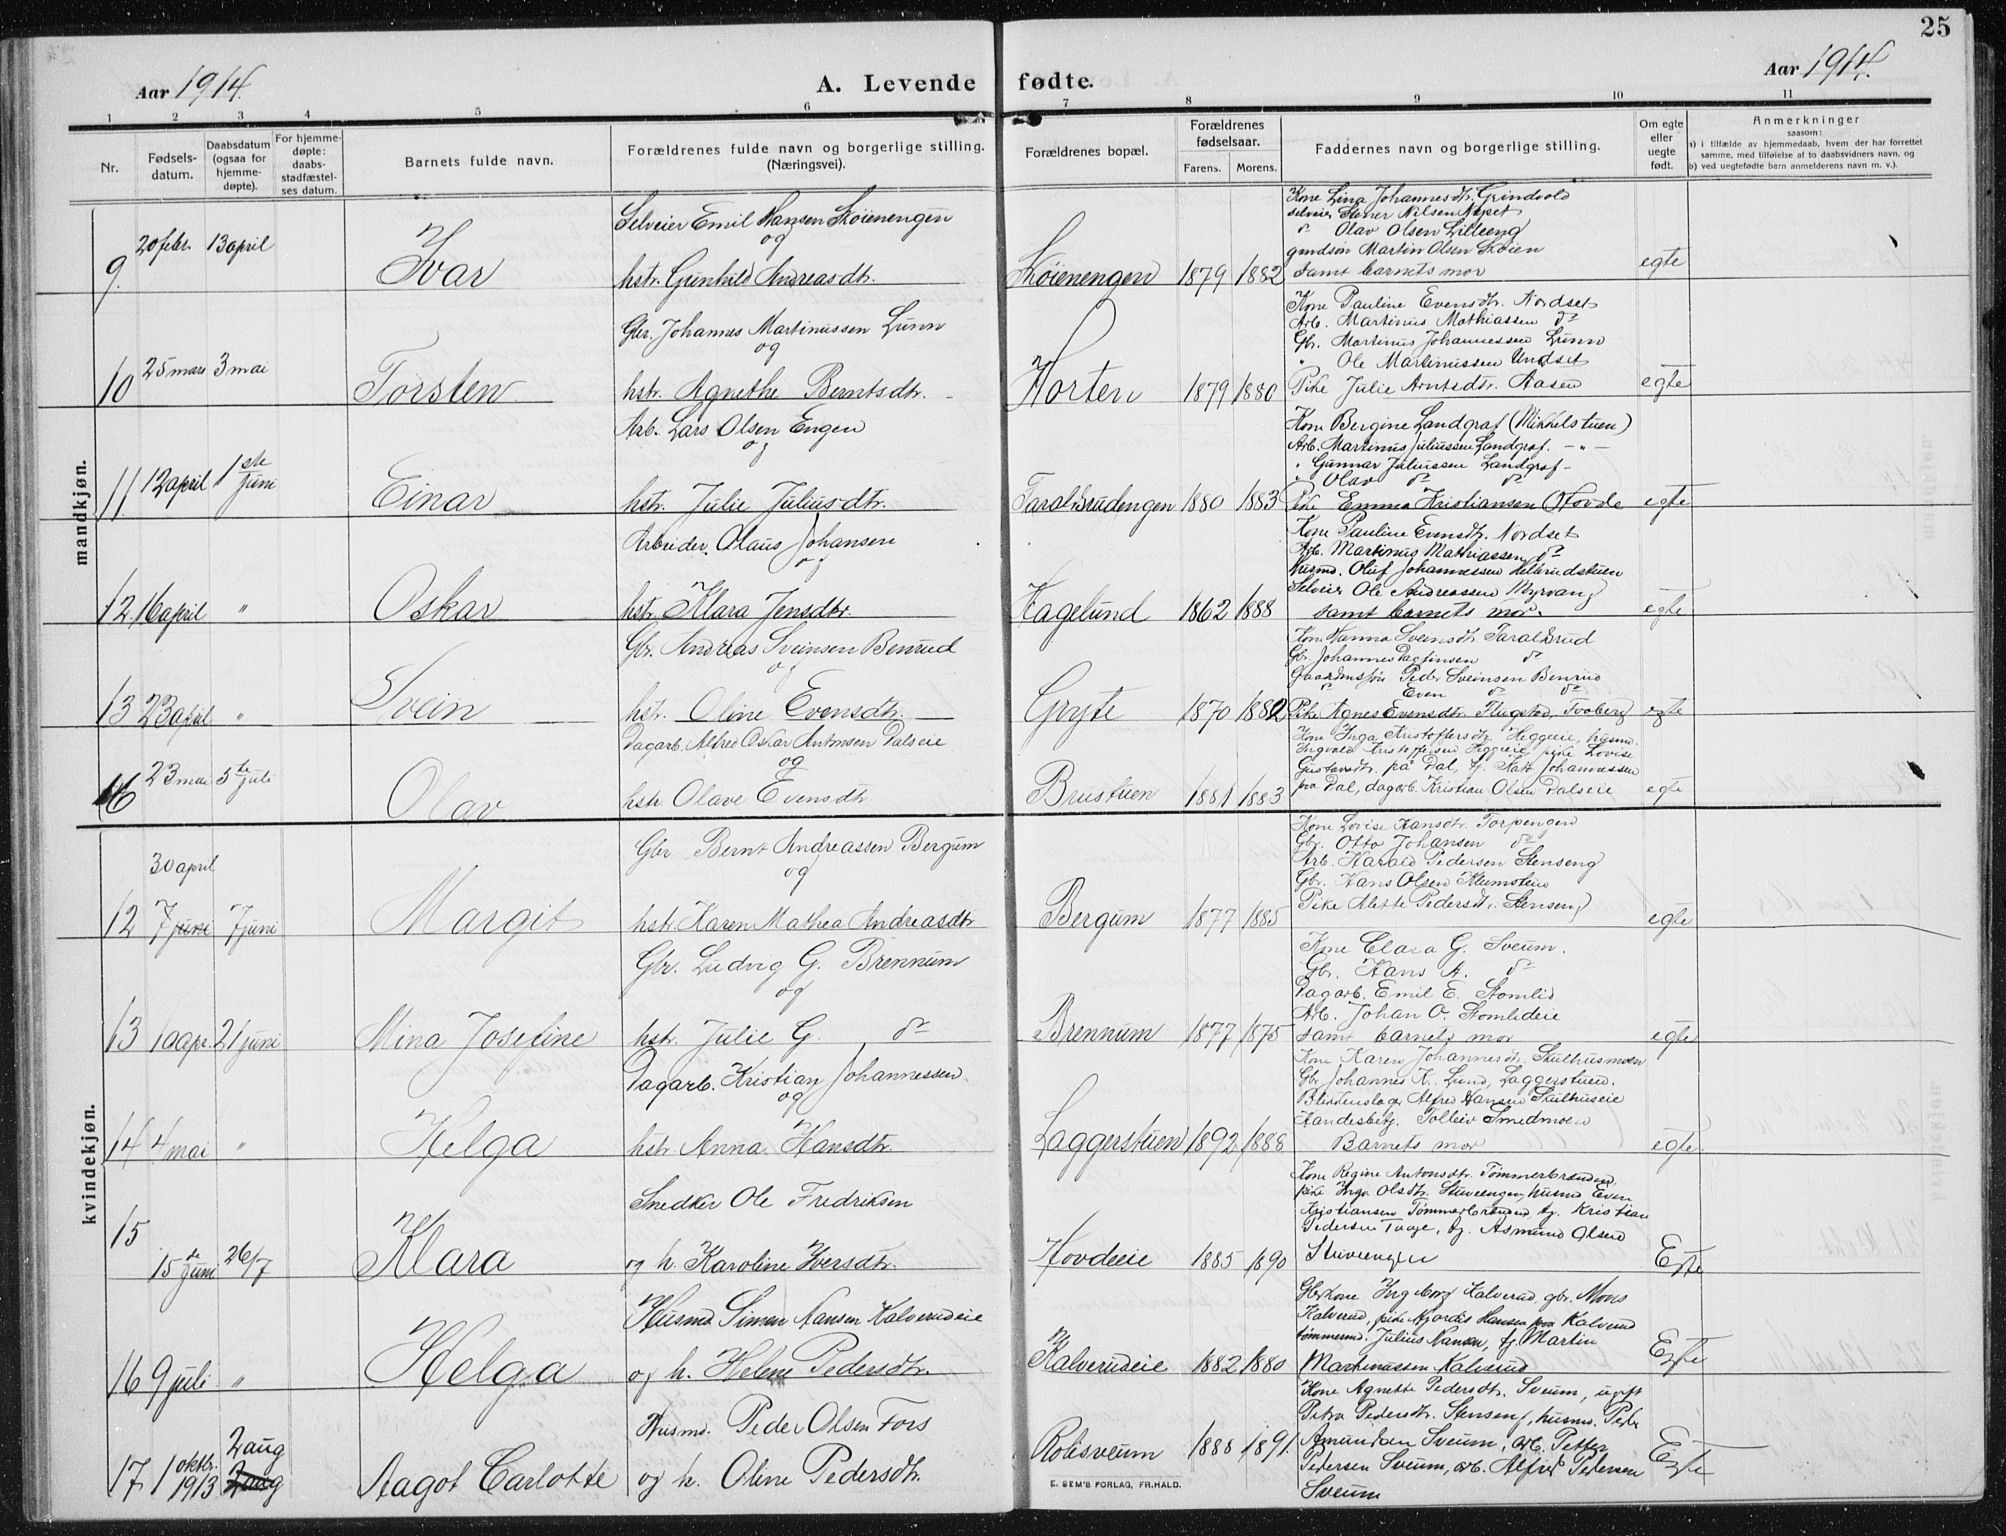 25
Aar 1914.
A. Levende fødte.
Aar 1914.
1 2 3 4 5 6 7 8 9 10 11
Nr.
Fødsels-
datum.
Daabsdatum
(ogsaa for
hjemme-
døpte).
For hjemme-
døpte:
daabs-
stadfæstel-
ses datum.
Barnets fulde navn.
Forældrenes fulde navn og borgerlige stilling.
(Næringsvei).
Forældrenes bopæl.
Forældrenes
fødselsaar.
Farens. Morens.
Faddernes navn og borgerlige stilling.
Om egte
eller
uegte
født.
Anmerkninger
saasom:
a) i tilfælde av hjemmedaab, hvem der har forrettet
samme, med tilføielse af to daabsvidners navn, og
b) ved uegtefødte barn anmelderens navn m. v.).
mandkjøn.
9. 20 febr. 13 april
Ivar
Selveier Emil Hansen Skøienengen
og
hstr. Gunhild Andreasdtr.
Skøienengen 1879 1882
Kone Lina Johannesdtr. Grindvold
selveier Stener Nilsen
" Olav Olsen Lilleeng
gaardsøn Martin Olsen Skøien
samt barnets mor
egte
10 25 mars 3 mai
Torsten
Gbr. Johannes Martinussen Lunn
og
hstr. Agnethe Berntsdtr.
Horten 1879 1880
Kone Pauline Evensdtr. Nordset
Arb. Martinus Mathiassen do
Gb. Martinus Johannessen Lunn
" Ole Martinussen Undset
Pike Julie Arntsdtr. Aasen
egte
11. 12 april 1ste juni
Einar
Arb. Lars Olsen Engen
og
hstr. Julie Juliusdtr.
Taralsrudengen 1880 1883
Kone Bergine Landgraf (Mikkelstuen)
Arb. Martinus Juliussen Landgraf. - " -
" Gunnar Juliussen Landgraf -
" Olav do do
Pike Emma Kristiansen Hovde
egte
12. 16 april "
Oskar
Arbeider Olaus Johansen
og
hstr. Klara Jensdtr.
Hagelund 1862 1888
Kone Pauline Evensdtr. Nordset
Arb. Martinus Mathiassen do
Husmd. Oluf Johannessen Helbrudstuen
Selveier Ole Andreassen Myrvang
samt barnets mor.
egte
13 23 april "
Svein
Gbr. Andreas Sveinsen Benrud
og
hstr. Oline Evensdtr.
Gryte 1870 1882
Kone Nanna Sveinsdtr. Taralsrud
Gb. Johannes Dagfinsen do
Gaardmsøn Peder Sveinsen Benrud
" Even do do
Pike Agnes Evensdtr. Flugstad, Faaberg
egte
16 23 mai 5te juli
Olav
Dagarb. Alfred Oskar Antonsen Dalseie
og
hstr. Olave Evensdtr.
Brustuen 1881 1883
Kone Inga Kristoffersdtr. Heggeie, husmd.
Ingvald Kristoffersen Heggeie, pike Lovise
Gustavsdtr. på Dal, tj. Johannessen
på Dal, dagarb. Kristian Olsen Dalseie
egte
kvindekjøn.
30 april
12 7 juni 7 juni
Margit
Gbr. Bernt Andreassen Bergum
og
hstr. Karen Mathea Andreasdtr
Bergum 1877 1885
Kone Lovise Hansdtr. Torpengen
Gbr. Otto Johansen do
Arb. Harald Pedersen Stenseng
Gbr. Hans Olsen Klemstein
Pike Mette Pedersdtr. Stenseng
egte
13 10 apr. 21 juni
Mina Josefine
Gbr. Ludvig G. Brennum
og
hstr. Julie G. do
Brennum 1877 1875
Kone Clara G. Sveum.
Gbr. Hans A. do
Dagarb. Emil E. Stomlid
Arb. Johan O. Stomlideie
samt barnets mor
egte
14 4 mai "
Helga
Dagarb. Kristian Johannessen
og
hstr. Anna Hansdtr.
Laggerstuen 1892 1888
Kone Karen Johannesdtr. Skulhusmoen
Gbr. Johannes K. Lund, Laggerstuen.
Blikkenslager Alfred Hansen Skulhuseie
Handesbetj. Tolleiv Smedmoen
Barnets mor
egte
15 15de juni 26/7
Klara
Snedker Ole Fredriksen
og h. Karoline Iversdtr.
Hovdeie 1885 1890
Kone Regine Antonsdtr. Tømmerbranden
pike Inga Olsdtr. Stuveengen, husmd Even
Kristiansen Tømmerbranden tj. Kristian
Pedersen, tj. Asmund Olsen
Stuveengen
Egte
16 9 juli "
Helga
Husmd. Simen Hansen Kalverudeie
og h. Helene Pedersdtr.
Kalverudeie 1882 1880
Gbrkone Ingeborg Kalverud, gbr. Mons
Kalverud, pike Hjørdis Hansen paa Kalverud
tømmermd. Julius Hansen, tj. Martin
Martinussen Kalverud
Egte
17 1 oktbr. 1913 2 aug
2 aug
Aagot Carlotte
Husmd. Peder Olsen Fors
og h. Oline Pedersdtr.
Robisveum 1888 1891.
Kone Agnette Pedersdtr. Sveum, ugift
Petra Pedersdtr. Stenseng, husmd. Peder
Amundsen Sveum, arb. Petter
Pedersen Sveum, arb. Alfred Pedersen
Sveum
Egte
E. SEM'S FORLAG, FR.HALD.